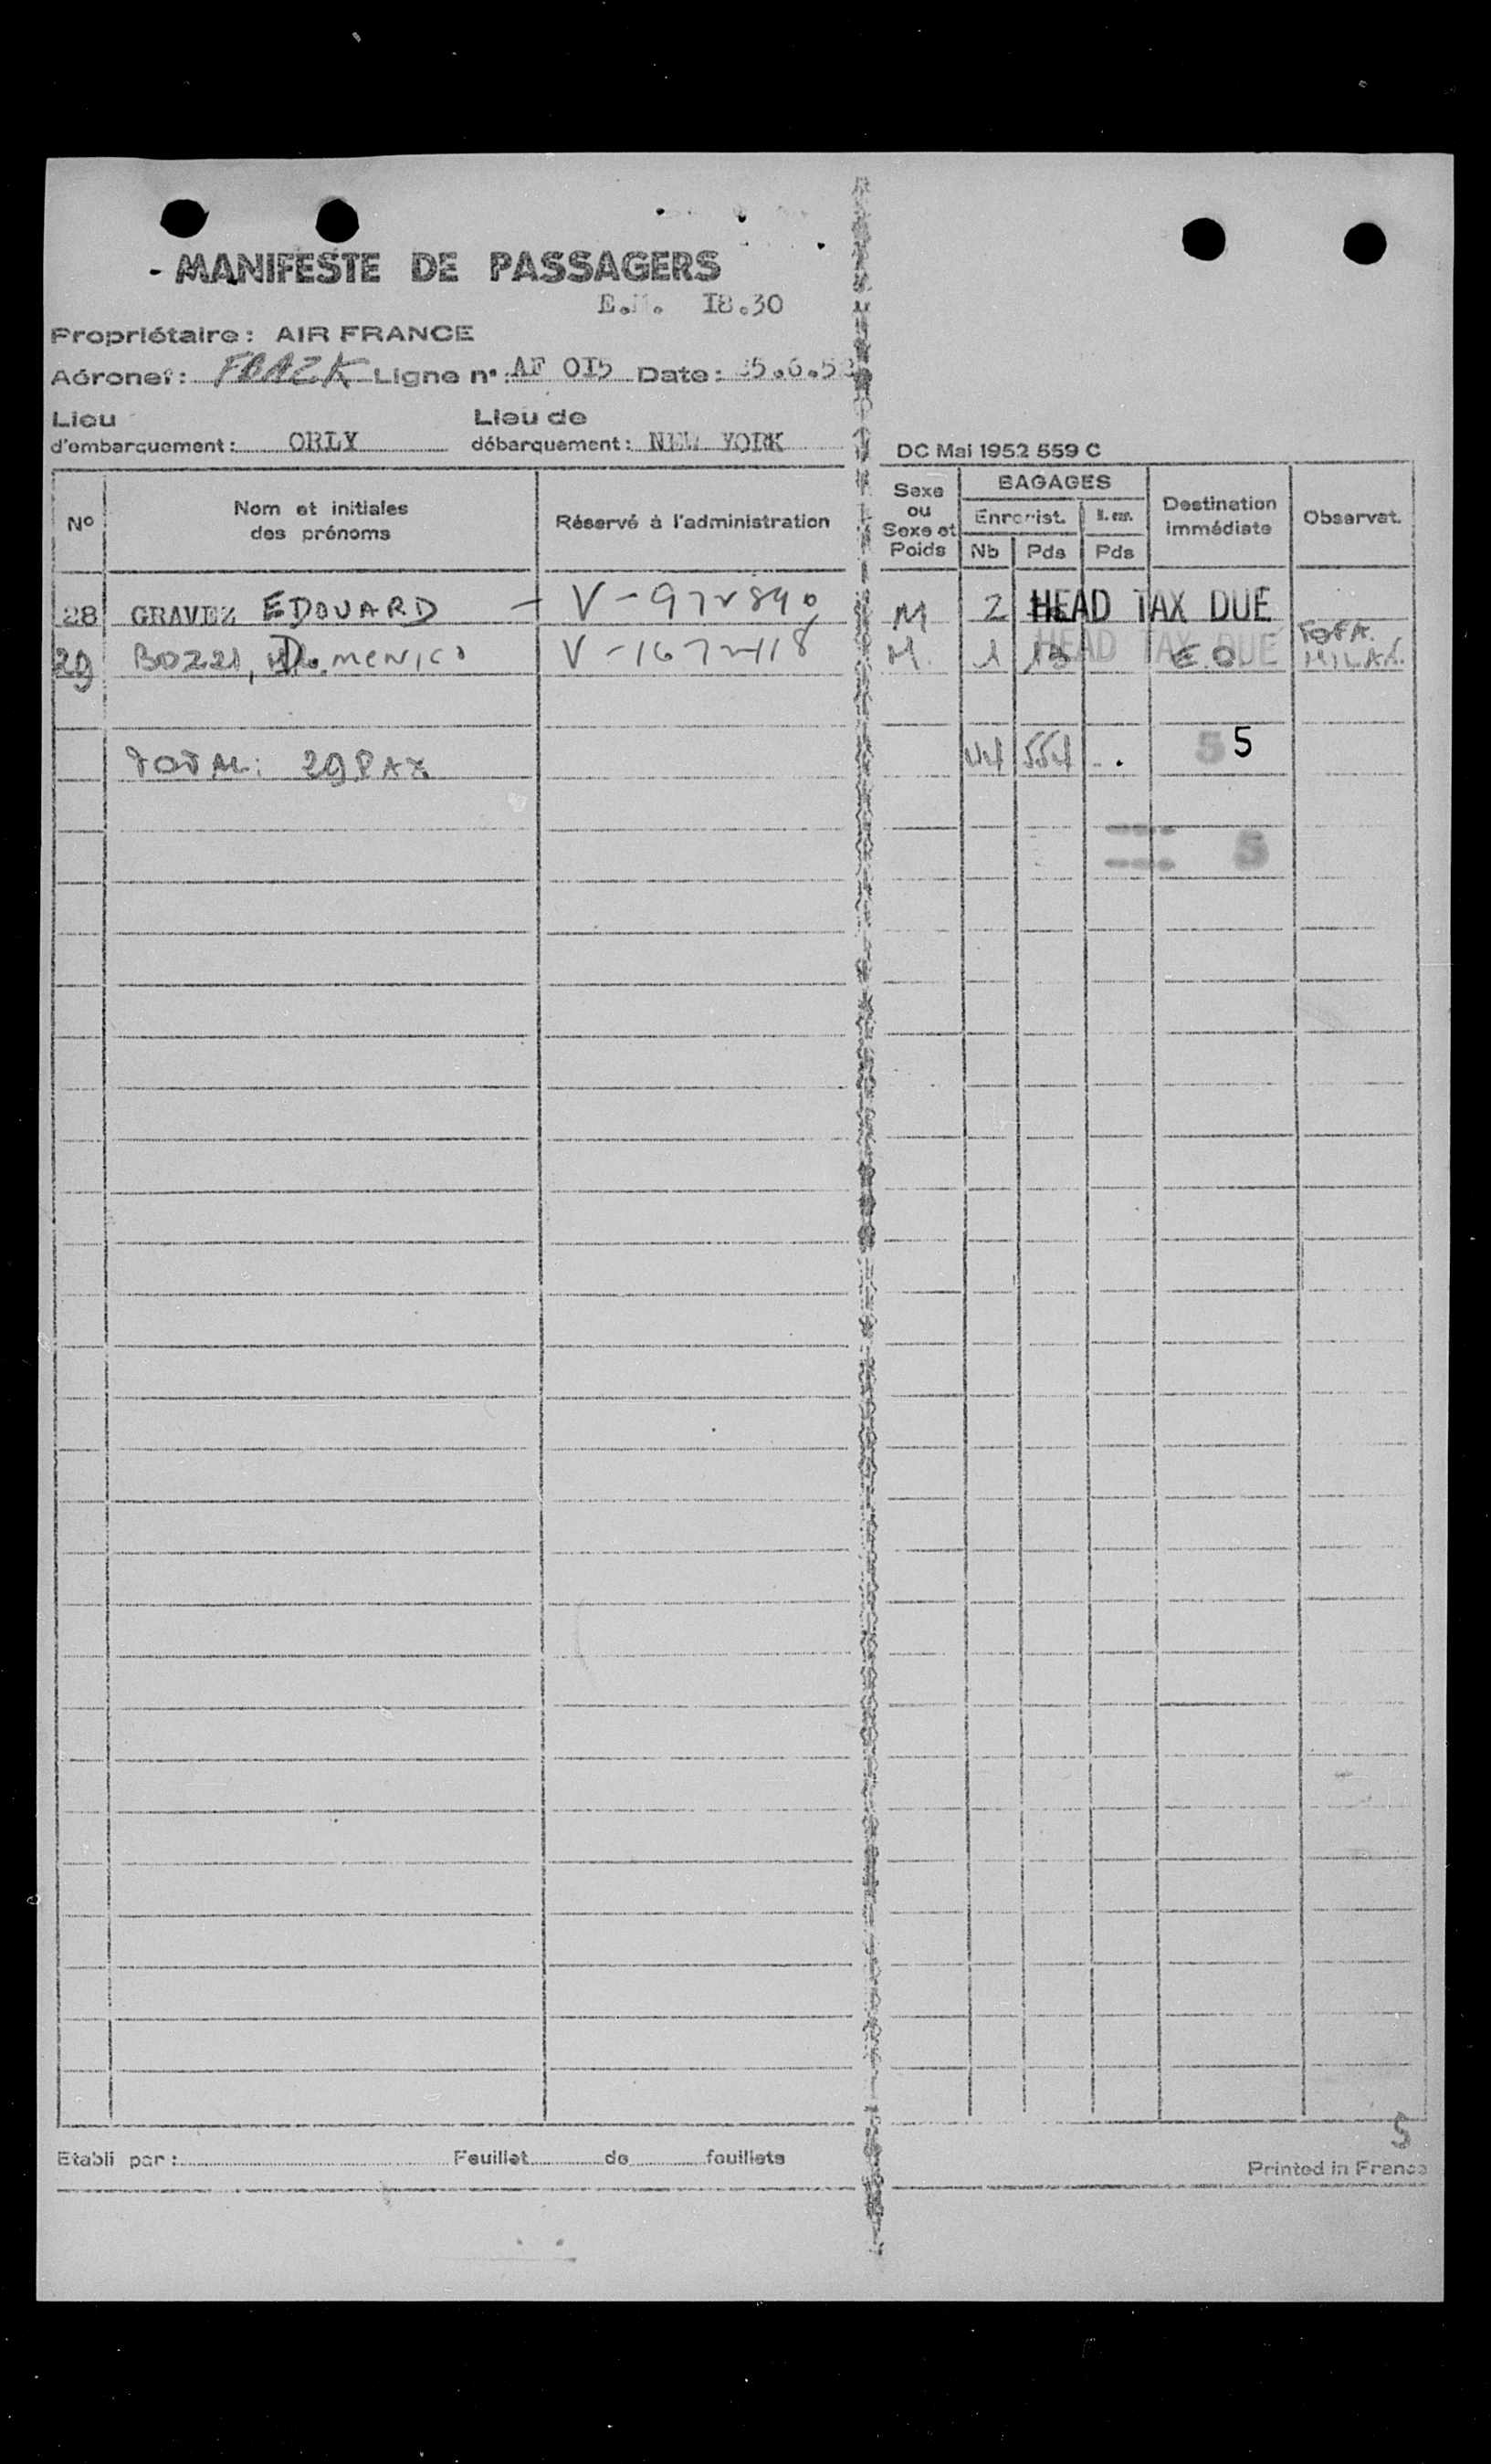 - MANIFESTE DE PASSAGERS
18.30
Propriétaire: AIR FRANCE
Aéronef: FBAZK Ligne n°: AF 015 Date: 25.6.52
Lieu d'embarquement: ORLY Lieu de débarquement: NEW YORK
DC Mai 1952 559 C
N° Nom et initiales des prénoms Réservé à l'administration Sexe ou Sexe et Poids BAGAGES Enregist. Nb Pds Pds Destination immédiate Observat.
28 GRAVEZ EDOUARD - V-972890 M 2 HEAD TAX DUE
29 BOZZI, DOMENICO V-1672418 M. 1 13 HEAD TAX DUE MILAN.
TOTAL: 29 PAX 44 554 5 5
5
5
Etabli par: Feuillet de feuillets
Printed in France